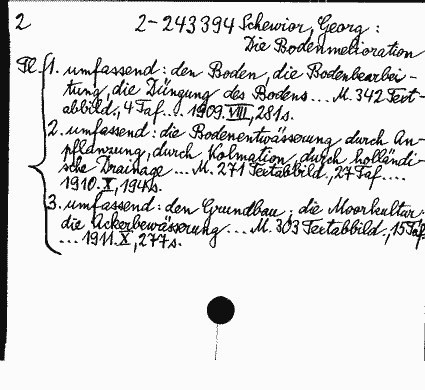 2 2-243394 Schewior, Georg:
Die Bodenmelioration
1. umfassend: den Boden, die Bodenbearbei-
tung, die Düngung des Bodens... M. 342 Text-
abbild., 4 Taf... 1909. VIII, 281 s.
2. umfassend: die Bodenentwässerung durch An-
pflanzung, durch Kolmation, durch holländi-
sche Drainage... M. 271 Textabbild., 27 Taf....
1910. X, 194 s.
3. umfassend: den Grundbau; die Moorkultur
die Ackerbewässerung... M. 303 Textabbild., 15 Taf.
... 1911. X, 277 s.